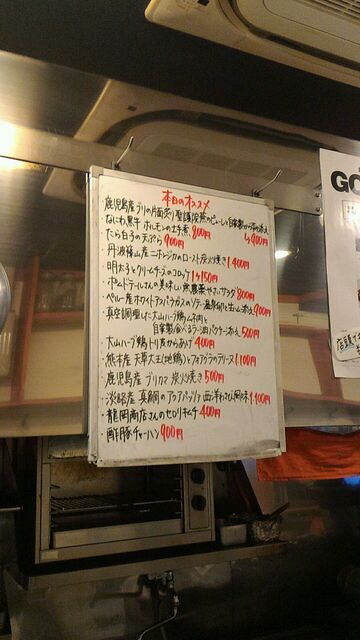 本日のオススメ
鹿児島産ブリの片面炙り 聖護院蕪のピューレと自家製からすみ添え 900円
なにわ黒牛 ホルモンの土手煮 800円
たら白子の天ぷら 900円
丹波篠山産 ニホンジカのロースト炭火焼き 1,400円
明太子とクリームチーズのコロッケ 1ケ150円
ホムドテールさんの美味しい無農薬やさいサラダ 800円
ペルー産ホワイトアスパラガスのソテー 温泉卵と生ハム添え 900円
真空調理した大山ハーブ鶏ムネ肉と
自家製食べるラー油バクテー添え 500円
大山ハーブ鶏トリ皮からあげ 400円
熊本産 天草大王(地鶏)とフォアグラのテリーヌ 1,100円
鹿児島産 ブリカマ 炭火焼き 500円
淡路産 真鯛のアクアパッツァ 西洋わさび風味 1,400円
龍岡商店さんのセロリキムチ 400円
酢豚チャーハン 900円
GO
店頭で